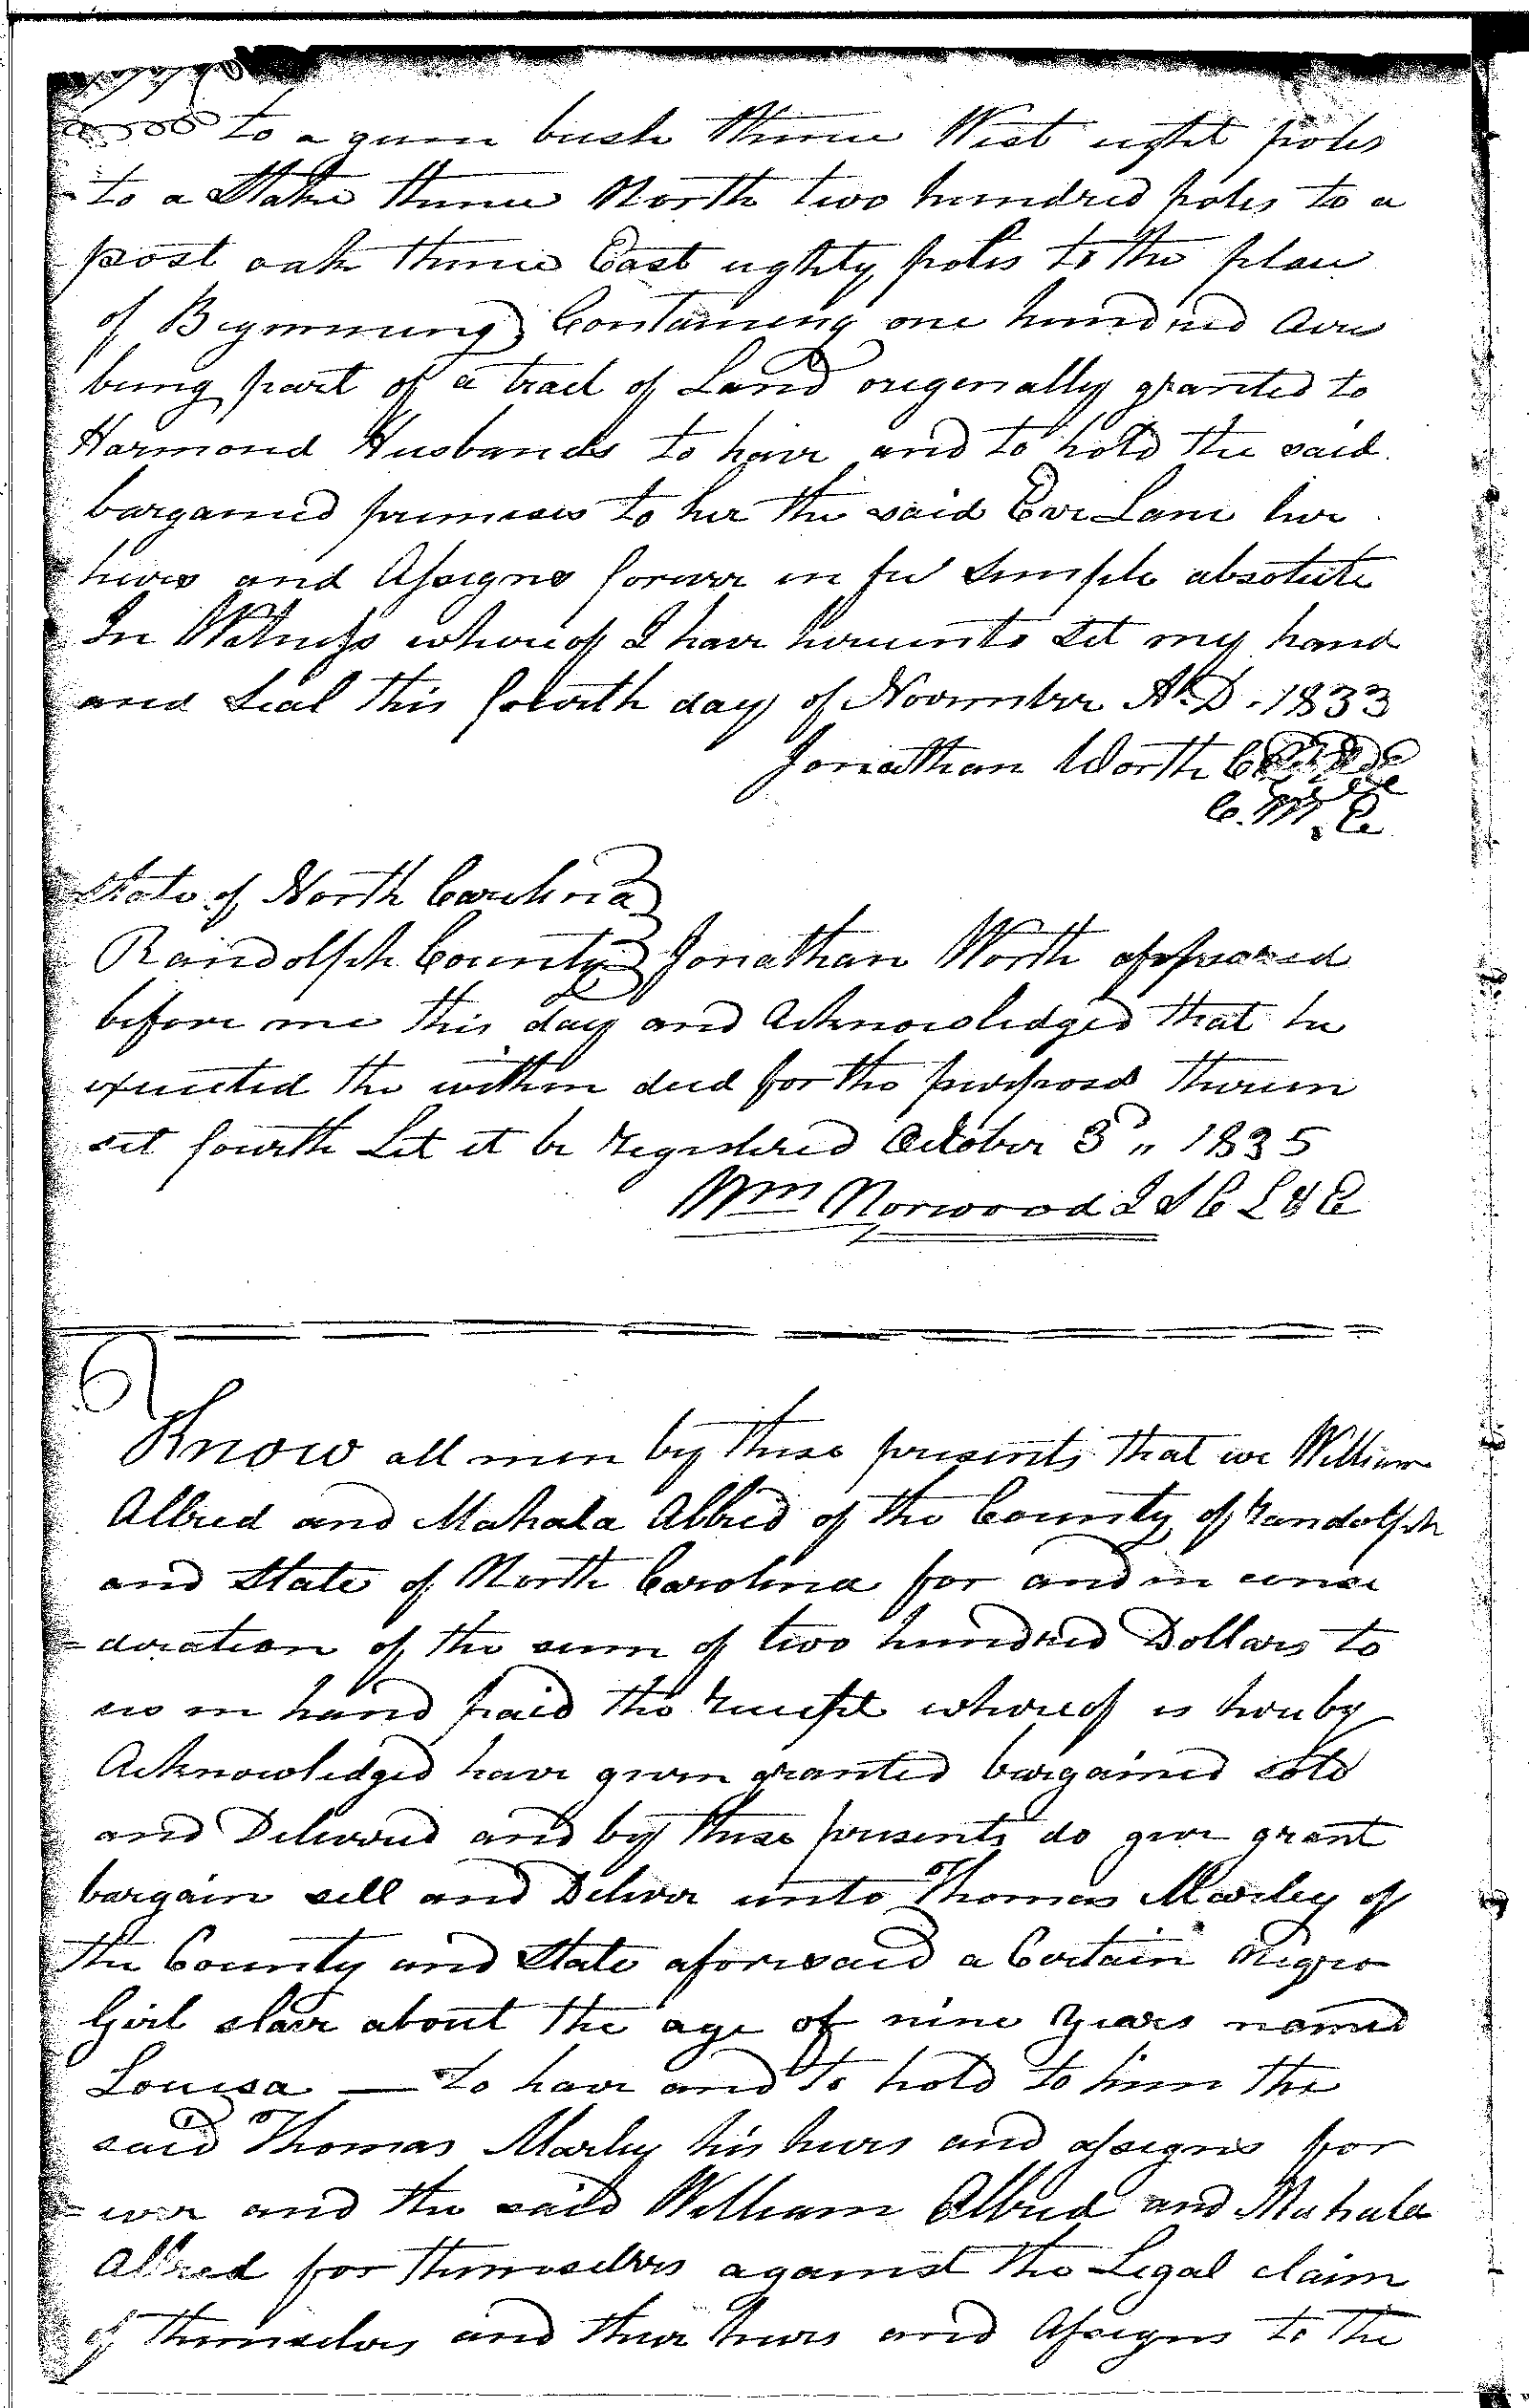 to a gum bush thence West eight poles
to a Stake thence North two hundred poles to a
post oak thence East eighty poles to the place
of Beginning Containing one hundred Acres
being part of a tract of Land originally granted to
Harmond Husbands to have and to hold the said
bargained premises to her the said Eve Lane her
heirs and Assigns forever in fee Simple absolute
In Witness whereof I have hereunto Set my hand
and Seal this fourth day of November A.D. 1833
Jonathan Worth
C. M. E.
State of North Carolina
Randolph County Jonathan Worth appeared
before me this day and Acknowledged that he
executed the within deed for the purposes therein
set fourth Let it be registered October 3d 1835
Wm Norwood J S C L & E
Know all men by these presents that we William
Allred and Mahala Allred of the County of Randolph
and State of North Carolina for and in consi
=deration of the sum of two hundred Dollars to
us in hand paid the receipt whereof is hereby
Acknowledged have given granted bargained sold
and Delivered and by these presents do give grant
bargain sell and Deliver unto Thomas Marley of
the County and State aforesaid a Certain Negro
Girl slave about the age of nine Years named
Louisa — to have and to hold to him the
said Thomas Marley his heirs and assigns for
=ever and the said William Allred and Mahala
Allred for themselves against the Legal claim
of themselves and their heirs and Assigns to the